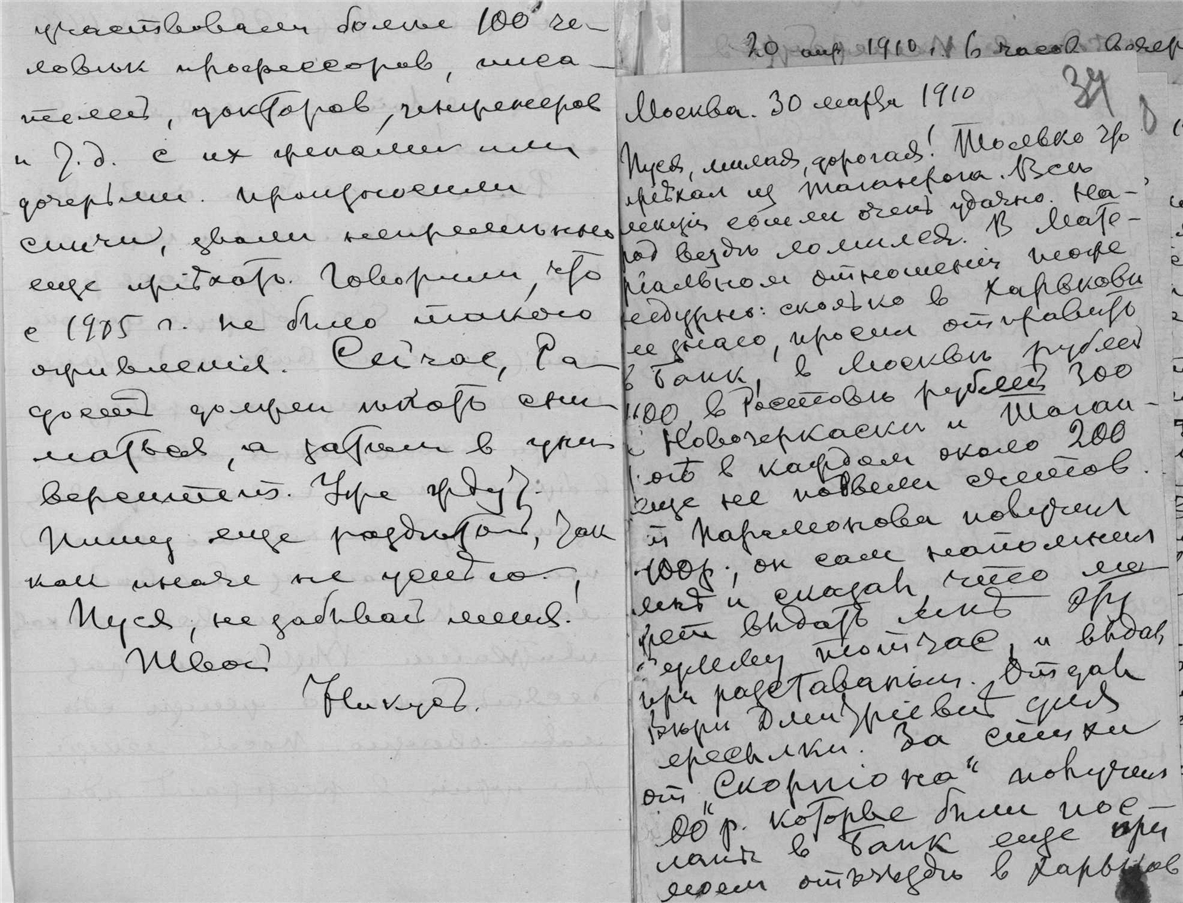 участвовали более 100 че-
ловѣк профессоров, писа-
телей, докторов, инженеров
и т.д. с их женами или
дочерьми. Произносили
спичи, звали непремѣнно
еще прiѣхать. Говорили, что
с 1905 г. не было такого
оживления. Сейчас, Ра-
дость должен ѣхать сни-
маться, а затѣм в уни
верситет. Уже ждут.
Пишу еще раздѣтой, так
как иначе не успѣю.
Пуся, не забывай меня!
Твой
Никусь.
20 апр 1910. 6 часов вечер
Москва. 30 марта 1910
34
Пуся, милая, дорогая! Только что
прiѣхал из Таганрога. Всѣ
лекцiи сошли очень удачно. На-
род вездѣ ломился. В мате-
рiальном отношенiи тоже
недурно: сколько в Харьковѣ
не знаю, просил отправить
в Банк, в Москвѣ рублей
в Ростовѣ рублей 300
Новочеркасскѣ и Таган-
в каждом около 200
еще не подвели счетов.
Парамонова получил
100 р., он сам напомнил
мнѣ и сказал, что мо
жет выдать мнѣ эту
сумму тотчас, и выдал
при разставаньи. Отдал
Дмитрiевой для
пересылки. За стихи
от „Скорпiона" получил
00 р. которые были пос-
ланы в Банк еще при
моем отъѣздѣ в Харьков